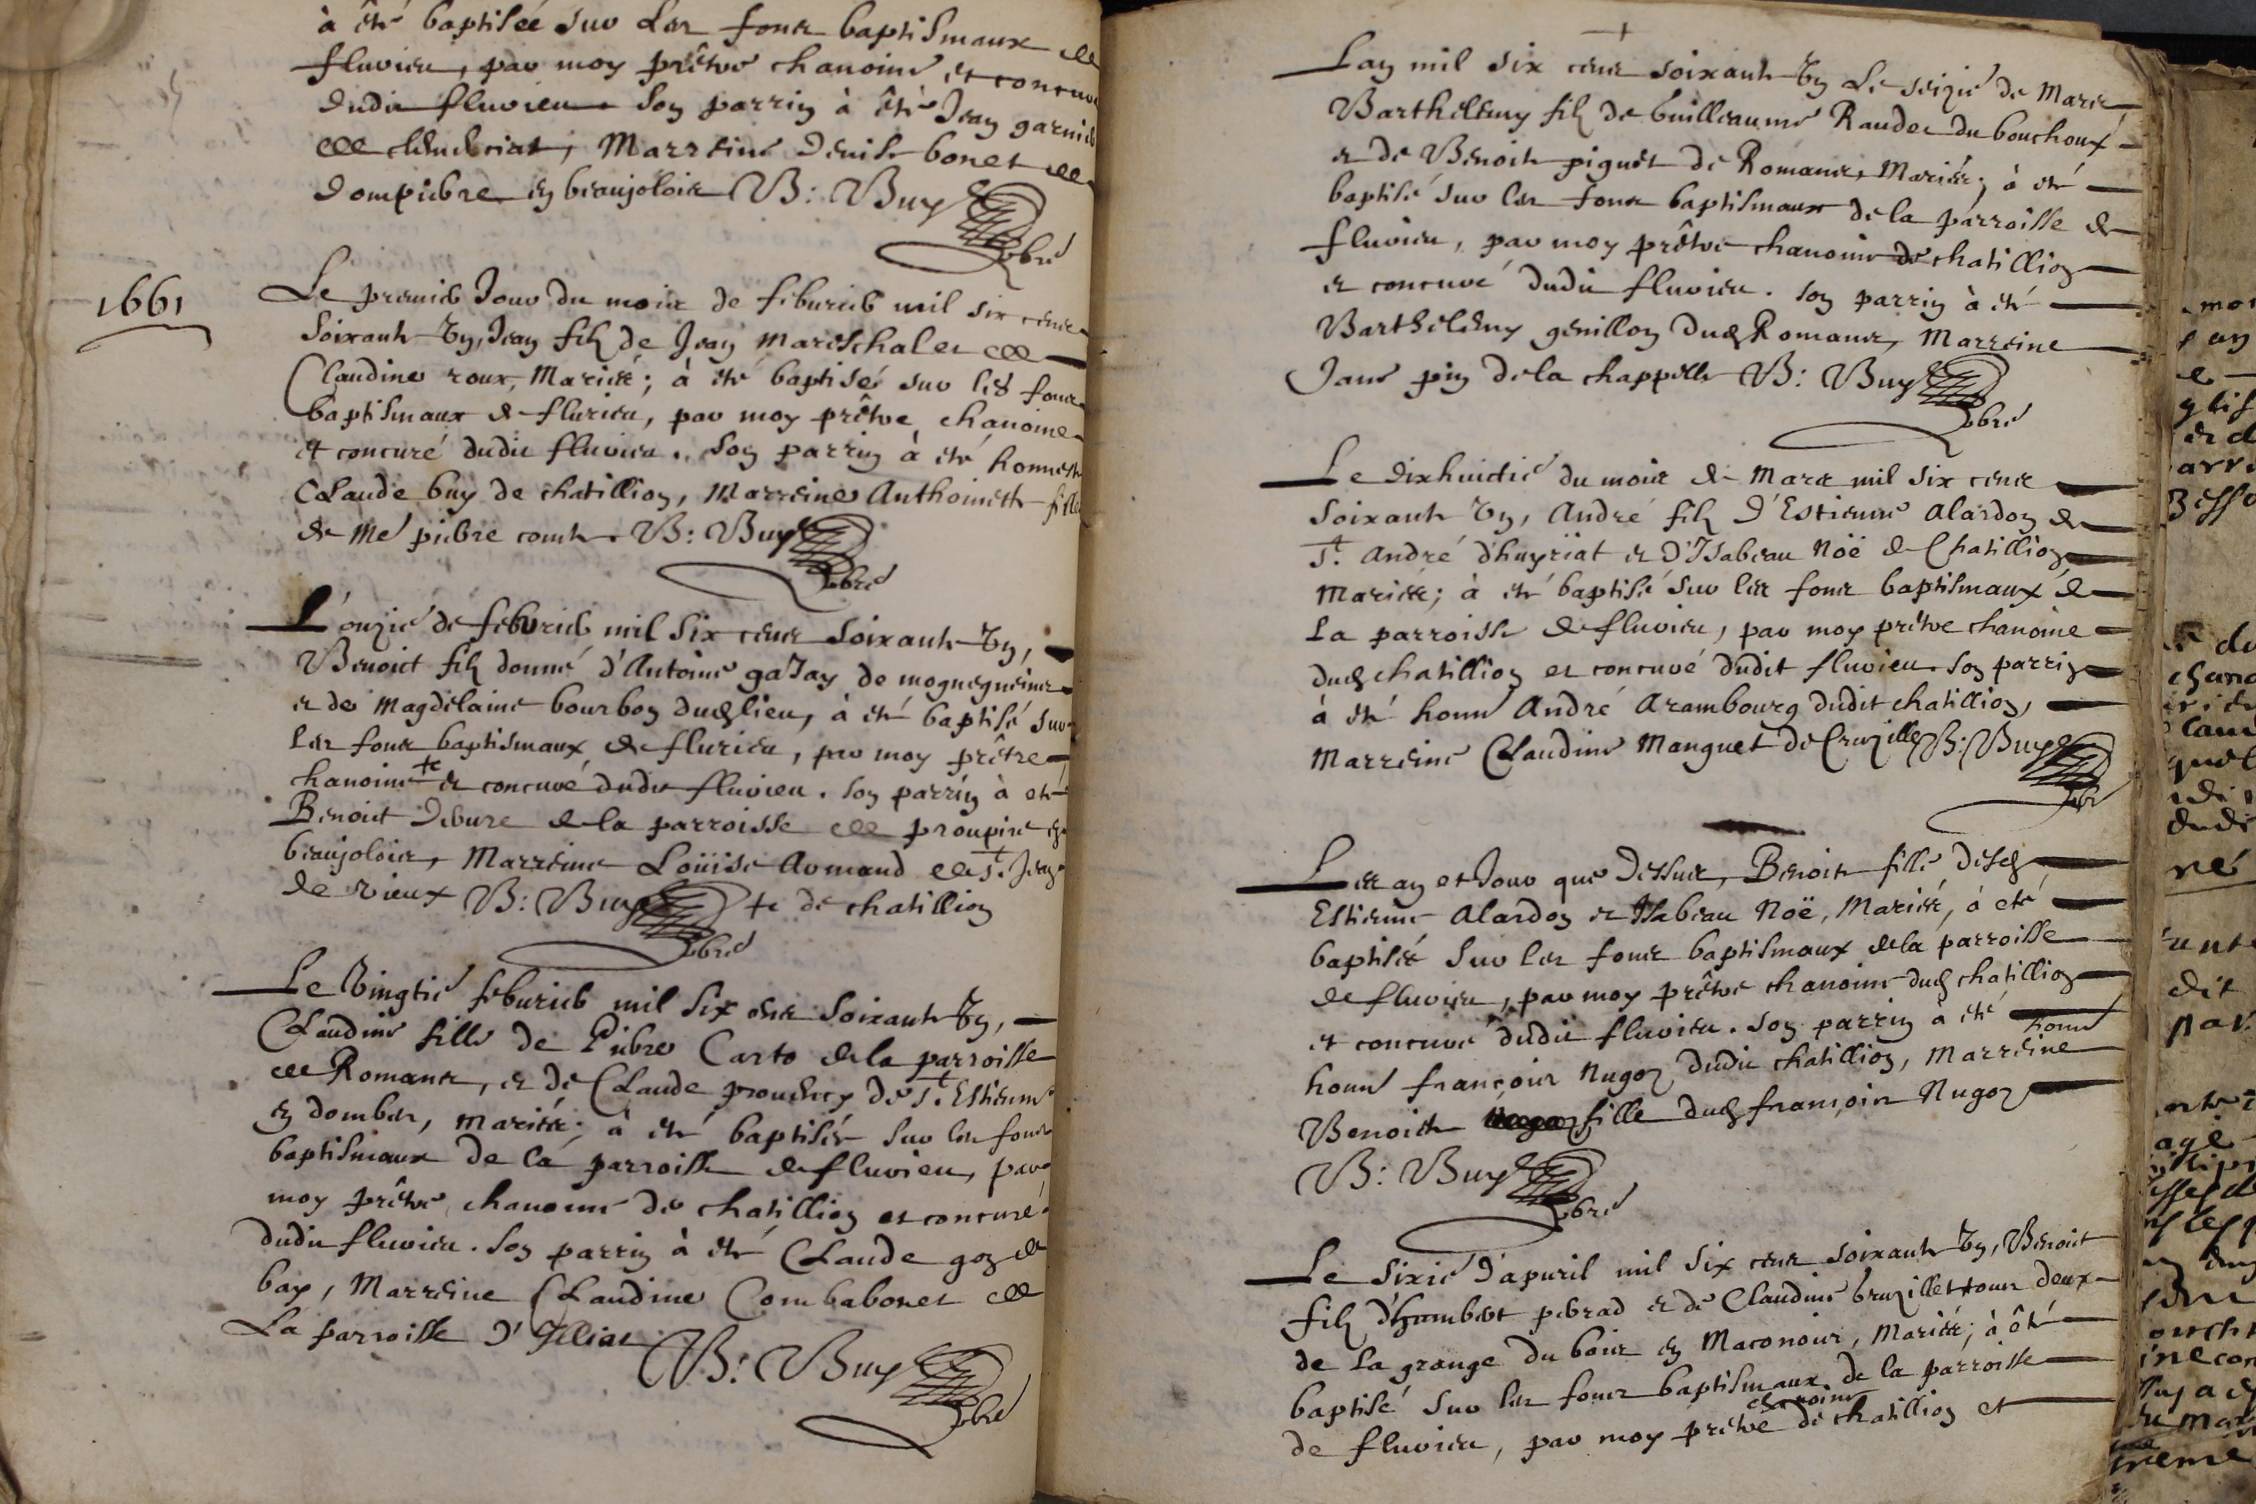 à été baptisée sur les fons baptismaux de
fluvieu, par moy prêtre chanoine et concuré
dudit fluvieu. Son parrin à été Jean garnier
de chandeiat, Marreine Denise bonet de
dompierre en beaujolois B: Buy
pbre
1661
Le premier Jour du mois de feburier mil six cens
soixante Un, Jean filz de Jean Mareschal et de
Claudine roux, Mariés; à été baptisé sur les fons
baptismaux de flurieu, par moy prêtre, chanoine
et concuré dudit fluvieu. Son parrin à été honneste
Claude buy de chatillion, Marreine Anthoinette fille
de Me pierre comte. B: Buy
pbre
L'onzie de febvrier mil six cens soixante Un,
Benoict filz donné d'Antoine gaJay de mogneneins
et de Magdelaine bourbon dud lieu, à été baptisé sur
les fons baptismaux de flurieu, par moy prêtre
chanoine + et concuré dudit fluvieu. son parrin à été
Benoict Debure de la parroisse de propiere en
beaujolois, Marreine Loüise Armand de St Jean
de vieux B: Buy + de chatillion
pbre
Le Vingtie feburier mil six cens soixante Un,
Claudine fille de Pierre Carto de la parroisse
de Romans, et de Claude proudhon de St Estienne
en dombes, mariés; à été baptisée sur les fons
baptismaux de la parroisse de fluvieu, par
moy prêtre, chanoine de chatillion et concuré
dudit fluvieu. son parrin à été Claude gon de
bay, Marreine Claudine Combabonet de
La parroisse d'Illiat B: Buy
pbre
Lan mil six cens soixante Un Le seizie de Mars
Barthelemy filz de Guilleaume Raudet du bouchoux
et de Benoite piguet de Romans, Mariés; à été
baptisé sur les fons baptismaux de la parroisse de
fluvieu, par moy prêtre chanoine de chatillion
et concuré dudit fluvieu. son parrin à été
Barthelemy genillon dud Romans, Marreine
Jane pin de la chappelle B: Buy
pbre
Le dixhuictie du mois de Mars mil six cens
soixante Un, André filz d'Estienne Alardon de
St. André d'huyriat et d'Isabeau Noë de Chatillion
Mariés; à été baptisé sur les fons baptismaux de
La parroisse de fluvieu, par moy prêtre chanoine
dud chatillion et concuré dudit fluvieu. son parrin
à été honn André Arambourg dudit chatillion,
Marreine Claudine Manguet de Cruzille B: Buy
pbre
Les an et Jour que dessus, Benoite fille desd
Estienne Alardon et Isabeau Noë, Mariés, à été
baptisée sur les fons baptismaux de la parroisse
de fluvieu, par moy prêtre chanoine dud chatillion
et concuré dudit fluvieu. son parrin à été
honn françois Nugoz dudit chatillion, Marreine honn
Benoite fille dud françois Nugoz
B: Buy
pbre
Le sixie d'apuril mil six cens soixante Un, Benoict
filz d'humbert perrad et de Claudine bruzillet tous deux
de La grange du bois en Maconois, Mariés; à été
baptisé sur les fons baptismaux de la parroisse
de fluvieu, par moy prêtre chanoine de chatillion et